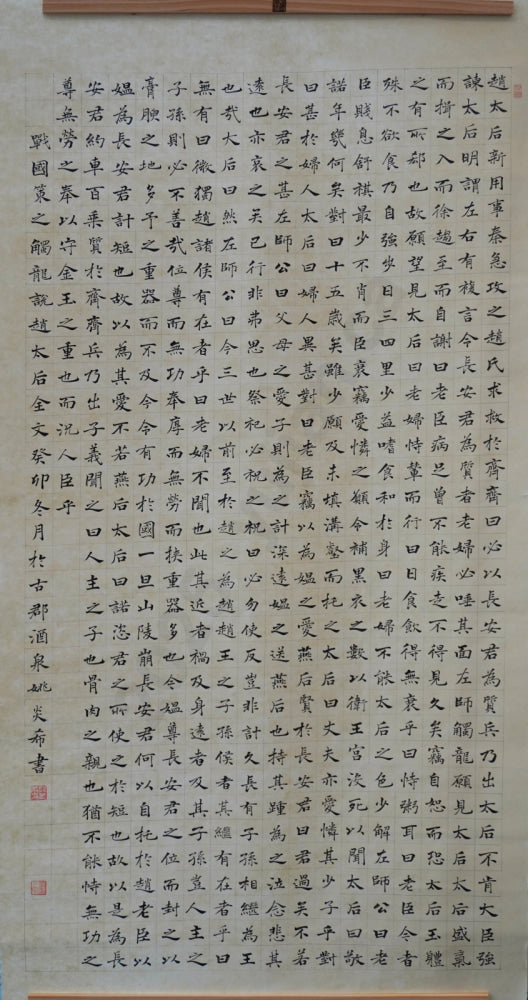 趙太后新用事秦急攻之趙氏求救於齊齊曰必以長安君為質兵乃出太后不肯大臣強
諫太后明謂左右有複言令長安君為質者老婦必唾其面左師觸龍願見太后太后盛氣
而揖之入而徐趨至而自謝曰老臣病足曾不能疾走不得見久矣竊自恕而恐太后玉體
之有所郄也故願望見太后曰老婦恃輦而行曰日食飲得無衰乎曰恃粥耳曰老臣今者
殊不欲食乃自強步日三四里少益嗜食和於身曰老婦不能太后之色少解左師公曰老
臣賤息舒祺最少不肖而臣衰竊愛憐之願令補黑衣之數以衛王宮沒死以聞太后曰敬
諾年幾何矣對曰十五歲矣雖少願及未填溝壑而托之太后曰丈夫亦愛憐其少子乎對
曰甚於婦人太后曰婦人異甚對曰老臣竊以為媼之愛燕后賢於長安君曰君過矣不若
長安君之甚左師公曰父母之愛子則為之計深遠媼之送燕后也持其踵為之泣念悲其
遠也亦哀之矣已行非弗思也祭祀必祝之祝曰必勿使反豈非計久長有子孫相繼為王
也哉太后曰然左師公曰今三世以前至於趙之為趙趙王之子孫侯者其繼有在者乎曰
無有曰微獨趙諸侯有在者乎曰老婦不聞也此其近者禍及身遠者及其子孫豈人主之
子孫則必不善哉位尊而無功奉厚而無勞而挾重器多也今媼尊長安君之位而封之以
膏腴之地多予之重器而不及今令有功於國一旦山陵崩長安君何以自托於趙老臣以
媼為長安君計短也故以為其愛不若燕后太后曰諾恣君之所使之於短也故以是為長
安君約車百乘質於齊齊兵乃出子義聞之曰人主之子也骨肉之親也猶不能恃無功之
尊無勞之奉以守金玉之重也而況人臣乎
戰國策之觸龍說趙太后全文癸卯冬月於古郡酒泉姚炎希書